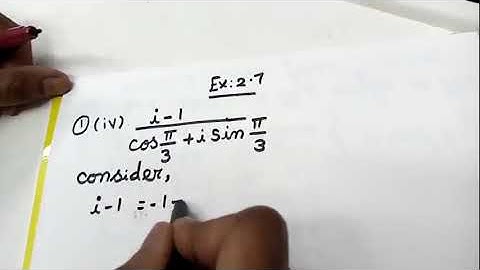 Ex: 2.7
① (iv) i-1
cos π/3 + i sin π/3
consider,
i-1 = -1